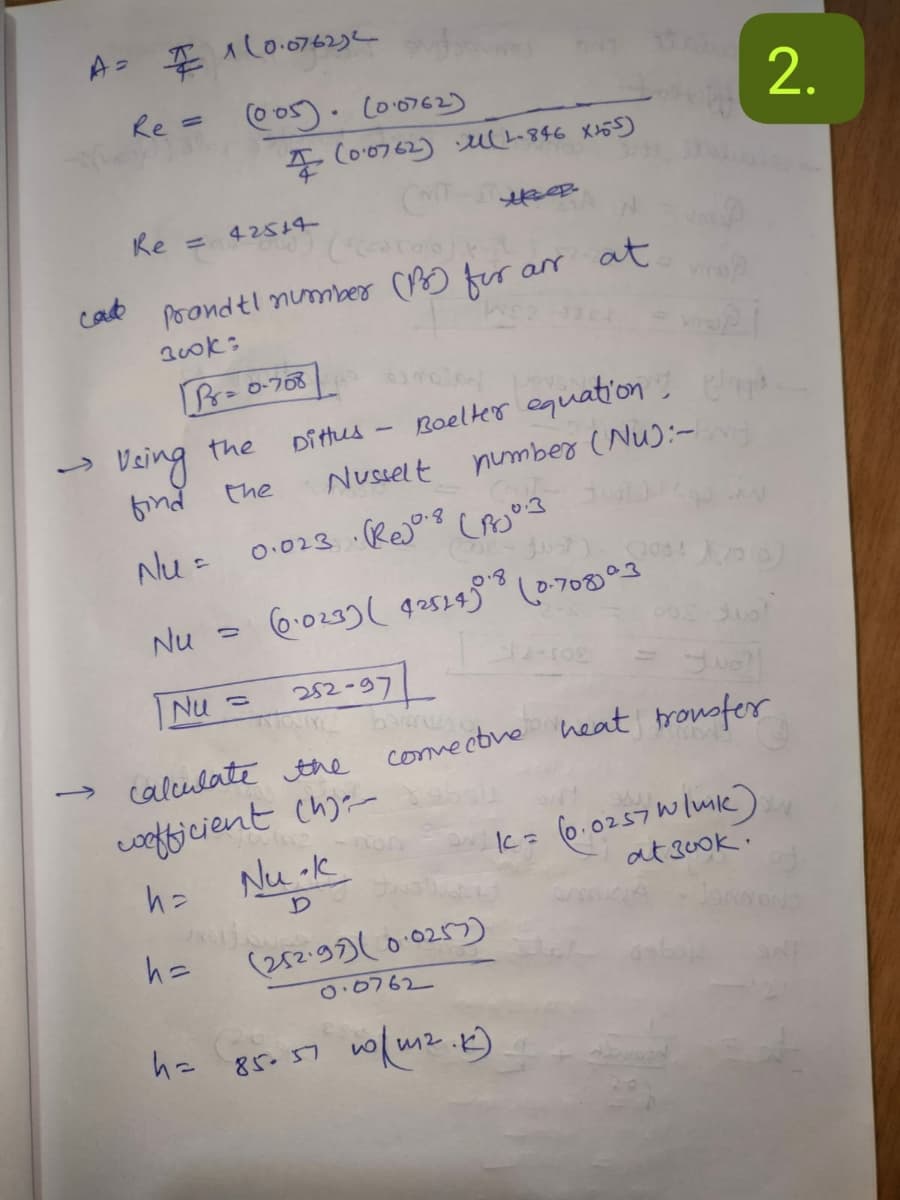 2.
A = π/4 × (0.0762)²
Re = (0.05) · (0.0762)
π/4 (0.0762) · μ(1.846 × 10⁵)
Re = 42514
prondtl number (Pr) for arr at
300k:
Pr = 0.708
→ Using the Dittus - Boelter equation,
find the Nusselt number (Nu):-
Nu = 0.023 · (Re)^0.8 (Pr)^0.3
Nu = (0.023)(42514)^0.8 (0.708)^0.3
Nu = 252.97
→ calculate the convective heat transfer
coefficient (h):-
h = Nu · k / D
k = (0.0257 W/mk)
at 300K.
h = (252.97)(0.0257)
0.0762
h = 85.57 w/(m2.K)